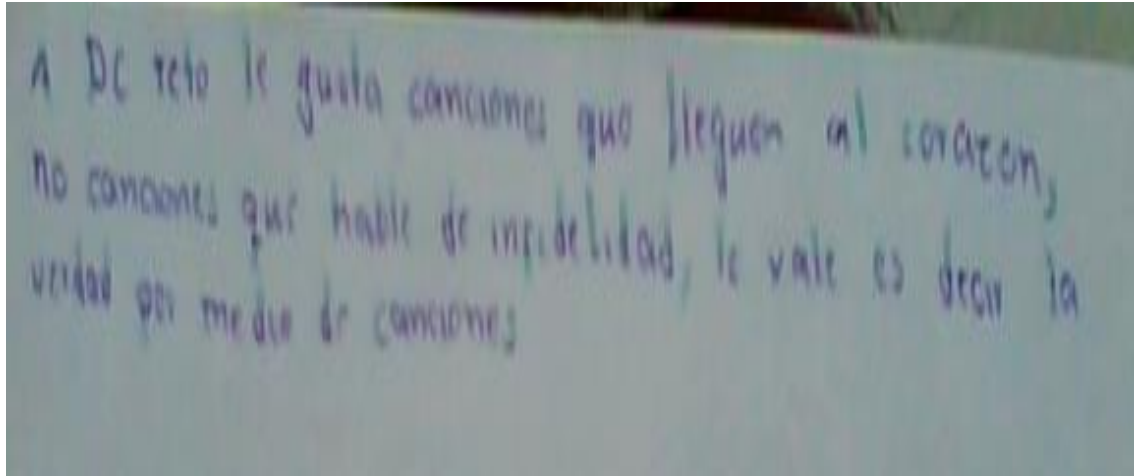 A DC reto le gusta canciones que lleguen al corazon,
no canciones que hable de infidelidad, le vale es decir la
verdad por medio de canciones